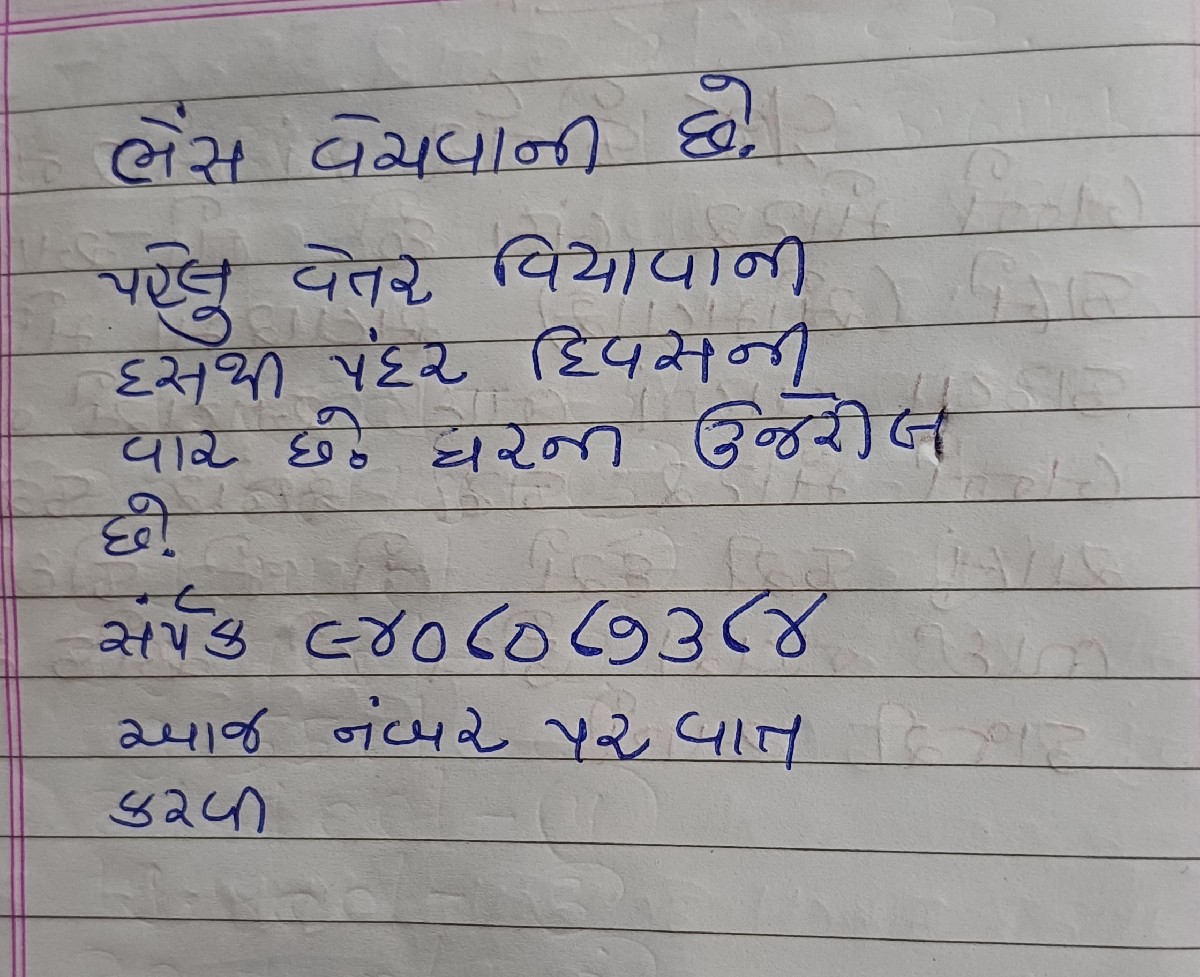 ભેંસ વેચવાની છે.
પહેલુ વેતર વિયાવાની
દસથી પંદર દિવસની
વાર છે. ઘરની ઉજેરીલ
છે.
સંર્પક ૯૪૦૮૦૮૭૩૮૪
આજ નંબર પર વાત
કરવી